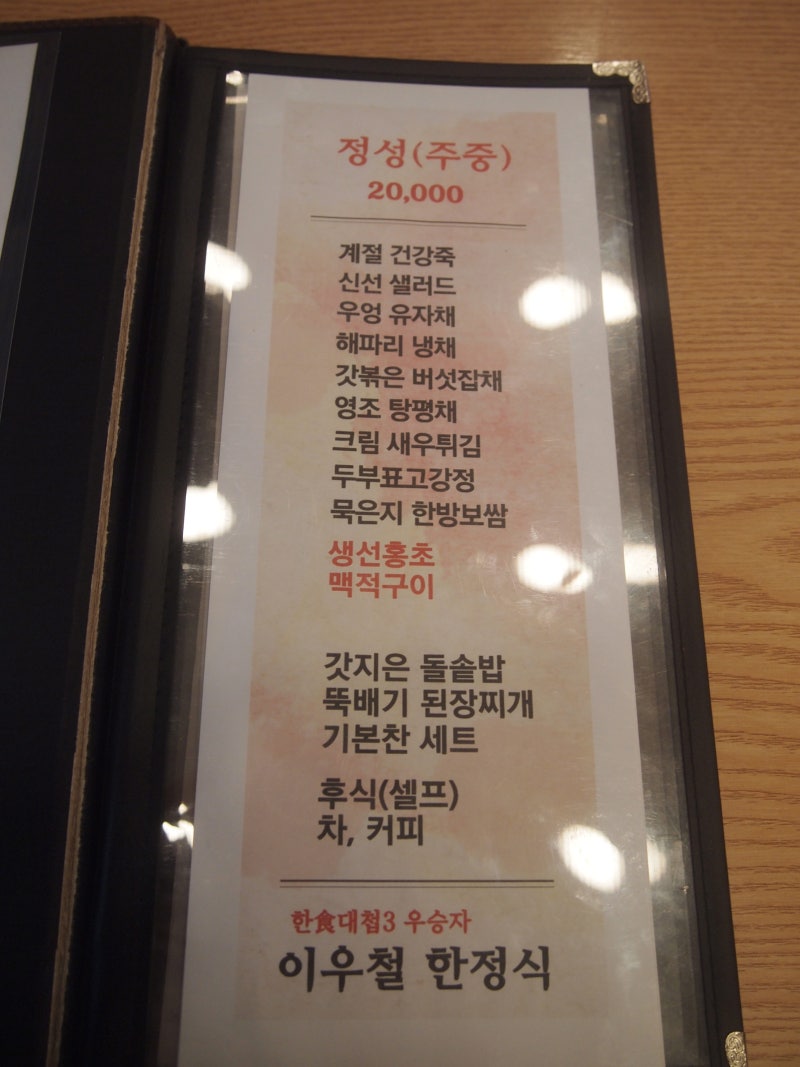 정성(주중)
20,000
계절 건강죽
신선 샐러드
우엉 유자채
해파리 냉채
갓볶은 버섯잡채
영조 탕평채
크림 새우튀김
두부표고강정
묵은지 한방보쌈
생선홍초
맥적구이
갓지은 돌솥밥
뚝배기 된장찌개
기본찬 세트
후식(셀프)
차, 커피
한食대첩3 우승자
이우철 한정식